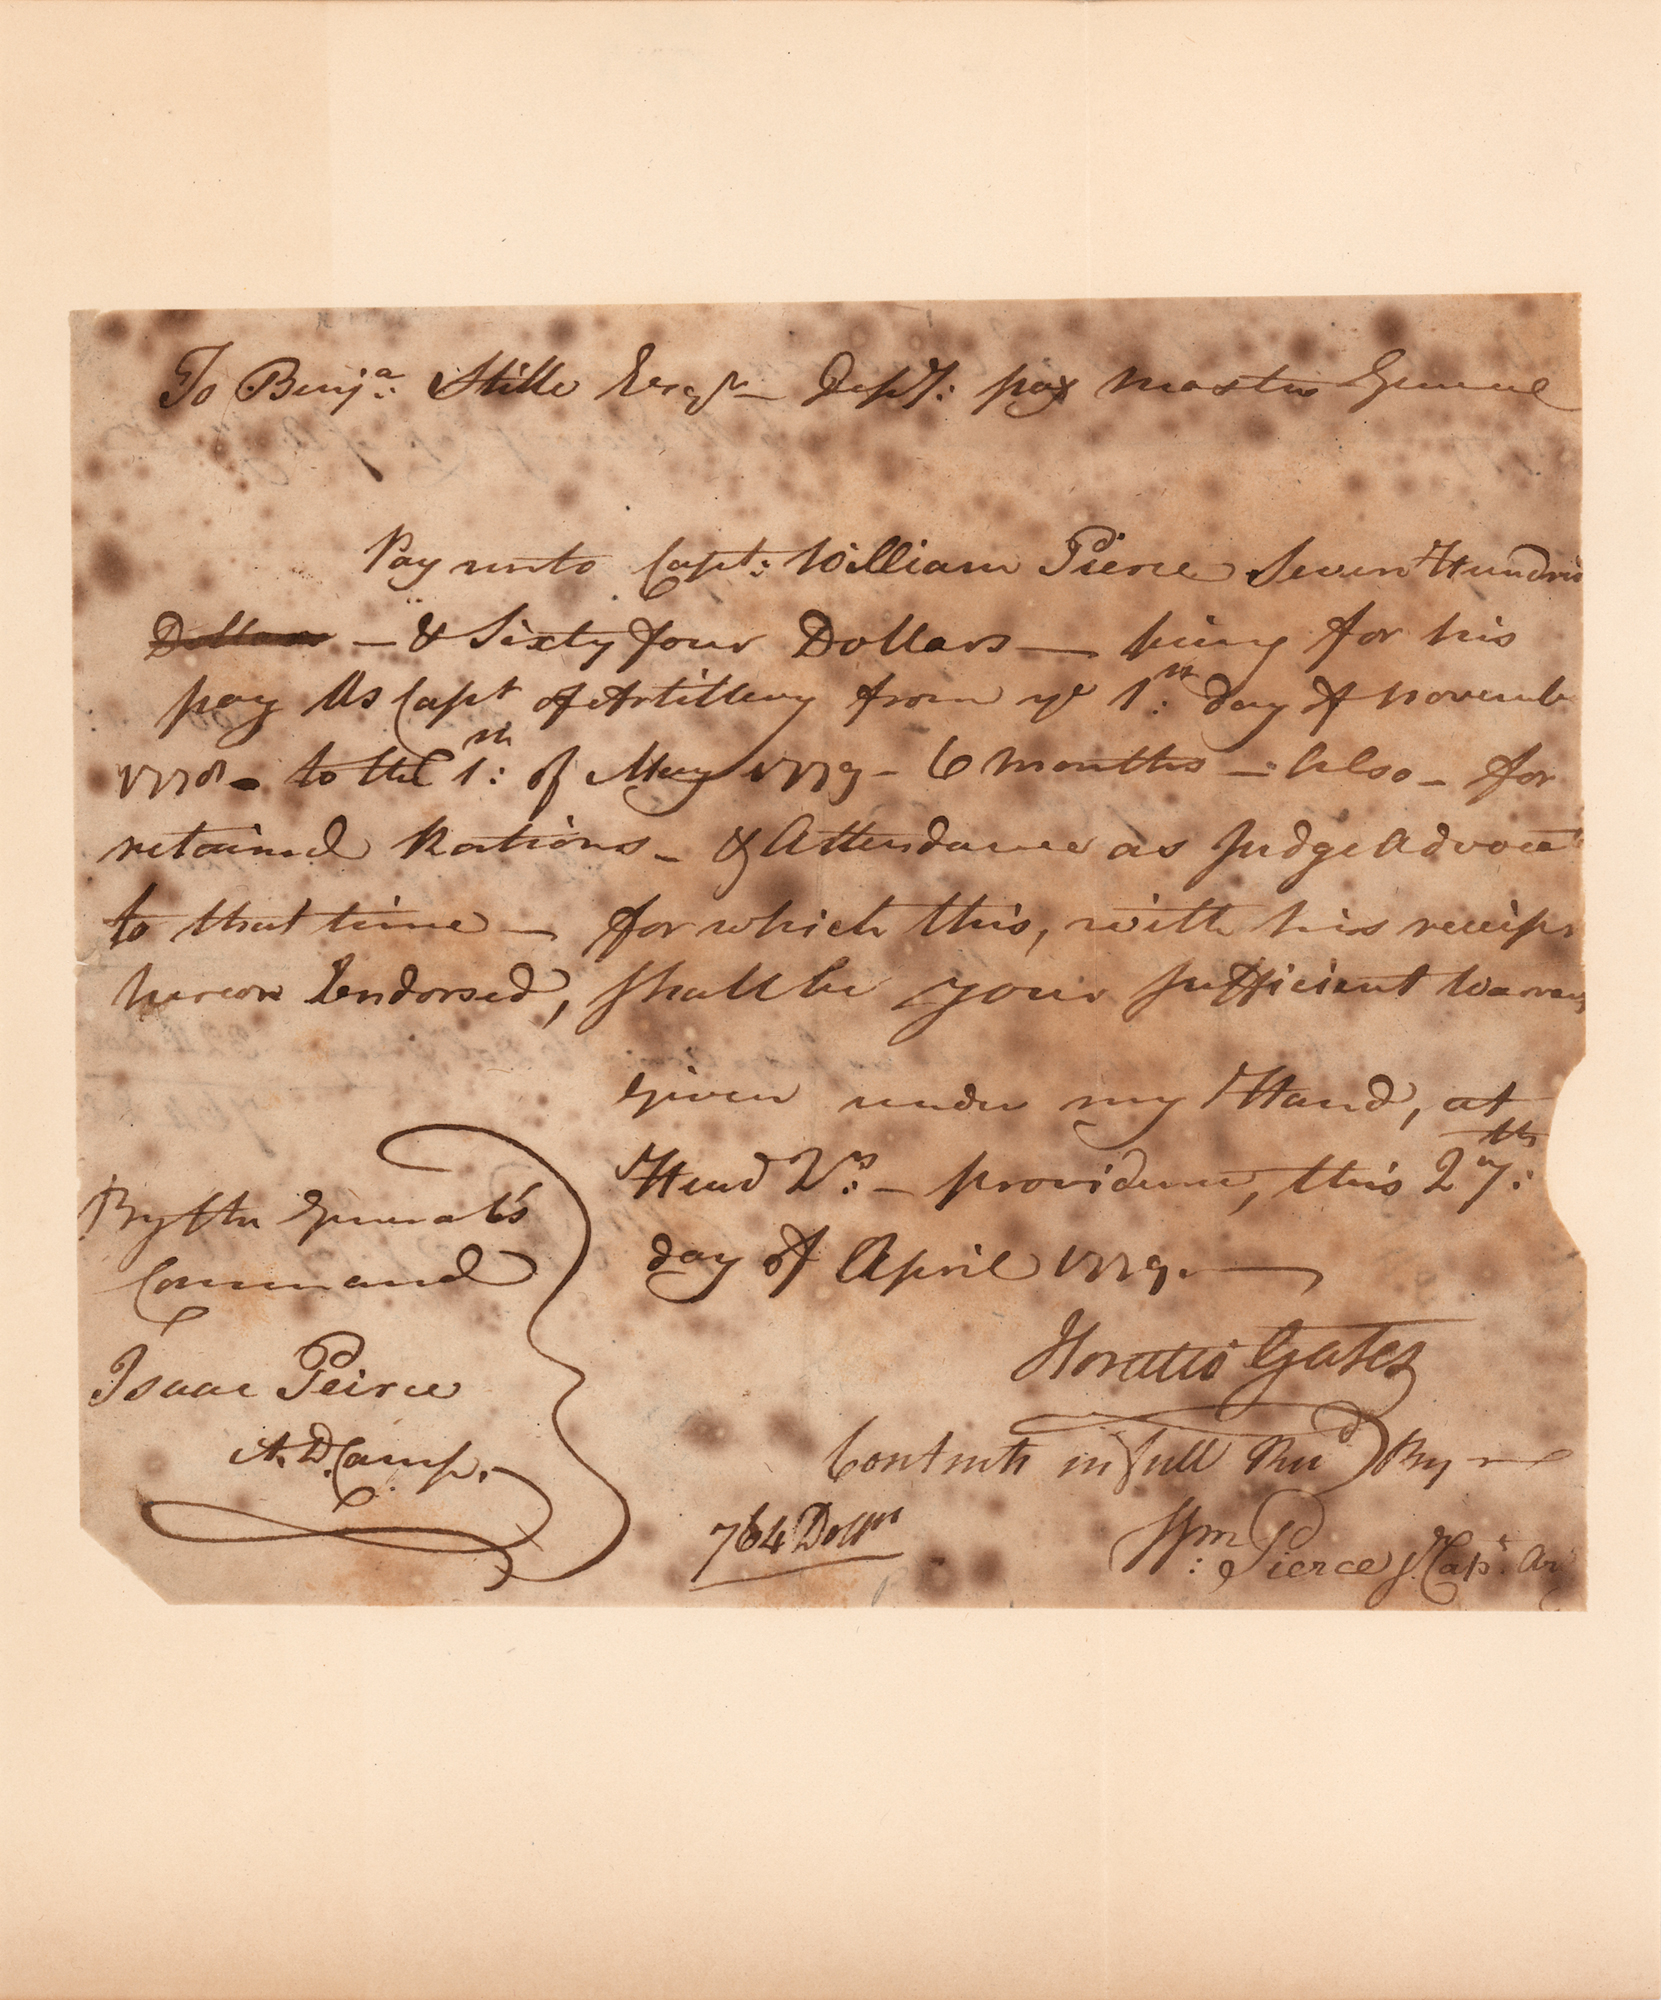 To Benj.a Stille Esqr — Depy: pay Master General
Pay unto Capt: William Pierce Seven Hundred
Dollars — & Sixty four Dollars — being for his
pay As Capt of Artillery from ye 1st: day of Novemb
1778 — to the 1st: of May 1779 — 6 Months — Also — for
retained Rations — & Attendance as Judge Advocate
to that time — for which this, with his receipt
hereon Endorsed, Shall be your Sufficient Warrant
Given under my Hand, at
Head Qrs: — providence, this 27th:
day of April 1779. —
By the General's
Command
Isaac Peirce
A. D. Camp.
Horatio Gates
Contents in full Recd By me
764 Dollrs
Wm: Pierce Jr. Capt. Ar